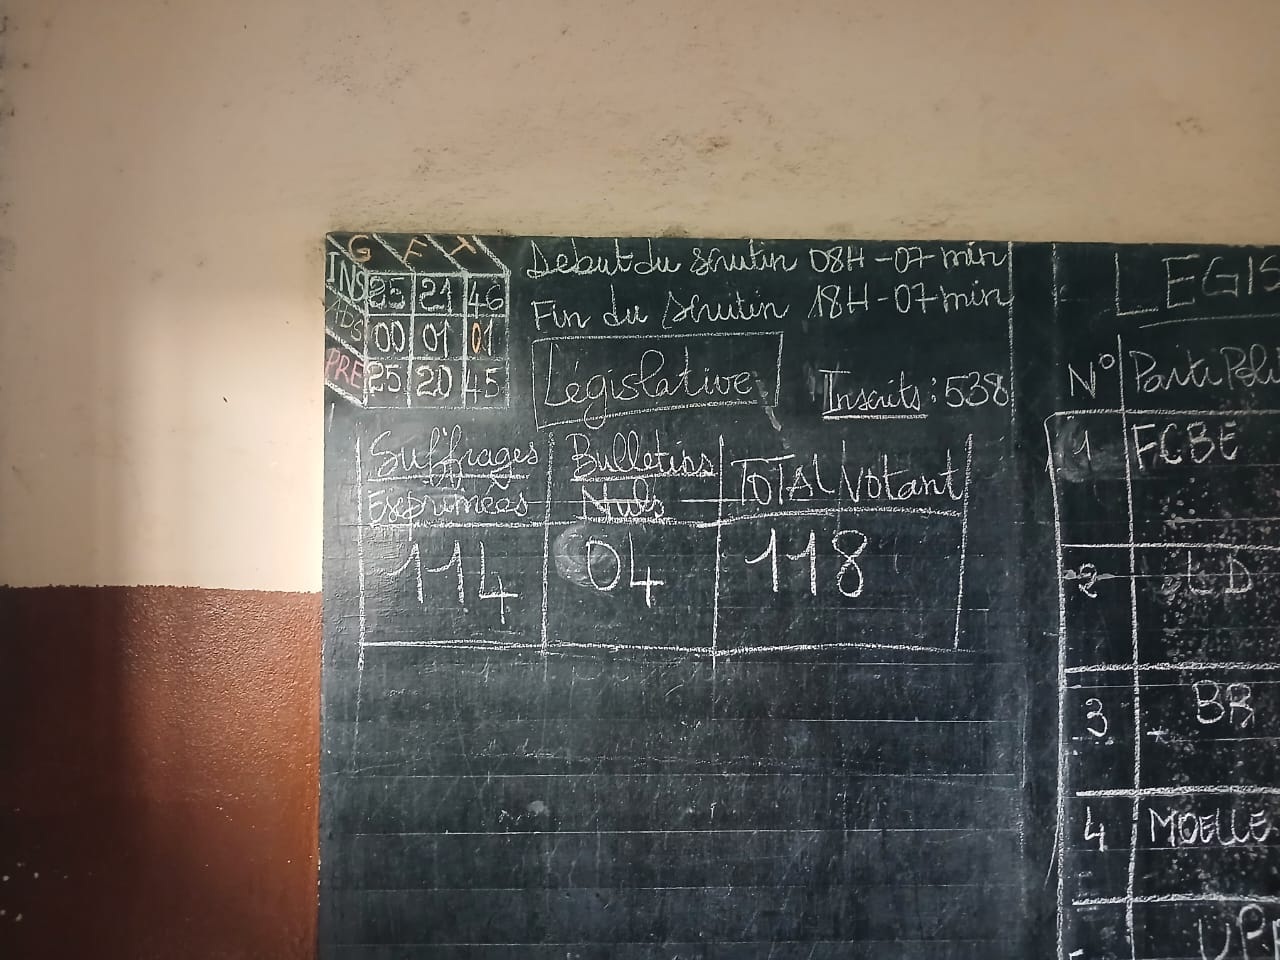 G F T
INS 25 21 46
ABS 00 01 01
PRE 25 20 45
Debut du Scrutin 08H-07min
Fin du Scrutin 18H-07min
Législative
Inscrits : 538
Suffrages Bulletins TOTAL Votant
Exprimées Nuls
114 04 118
LEGIS
N° Parti Poli
1 FCBE
2 LD
3 BR
4 MOELLE
UP